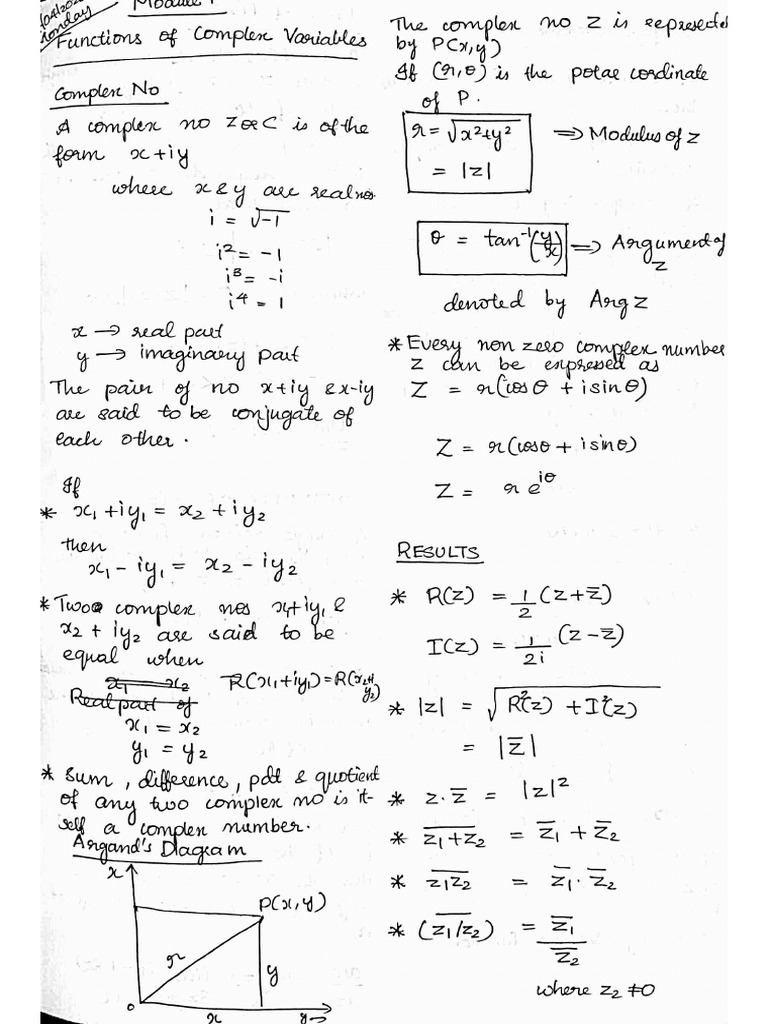 Module 1
Monday
Functions of Complex Variables
Complex No
A complex no Z or C is of the
form x+iy
where x & y are real nos
i = √-1
i² = -1
i³ = -i
i⁴ = 1
x → real part
y → imaginary part
The pair of no x+iy & x-iy
are said to be conjugate of
each other.
If
* x₁+iy₁ = x₂+iy₂
then
x₁-iy₁ = x₂-iy₂
* Two complex nos x₁+iy₁ &
x₂+iy₂ are said to be
equal when
x₁ = x₂ R(x₁+iy₁)=R(x₂+iy₂)
Real part of
x₁ = x₂
y₁ = y₂
* Sum, difference, pdt & quotient
of any two complex no is it-
self a complex number.
Argand's Diagram
x
P(x,y)
r
y
o
x
y→
The complex no Z is represented
by P(x,y)
If (r,θ) is the polar cordinate
of P.
r = √x²+y² ⇒ Modulus of z
= |z|
θ = tan⁻¹(y/x) ⇒ Argument of
z
denoted by Arg z
* Every non zero complex number
z can be expressed as
Z = r(cosθ + isinθ)
Z = r(cosθ + isinθ)
Z = r e^iθ
RESULTS
* R(z) = 1/2 (z+z̅)
I(z) = 1/2i (z-z̅)
* |z| = √R²(z) + I²(z)
= |z̅|
* z.z̅ = |z|²
* \overline{z₁+z₂} = z̅₁ + z̅₂
* \overline{z₁z₂} = z̅₁. z̅₂
* (\overline{z₁/z₂}) = z̅₁/z̅₂
where z₂ ≠ 0